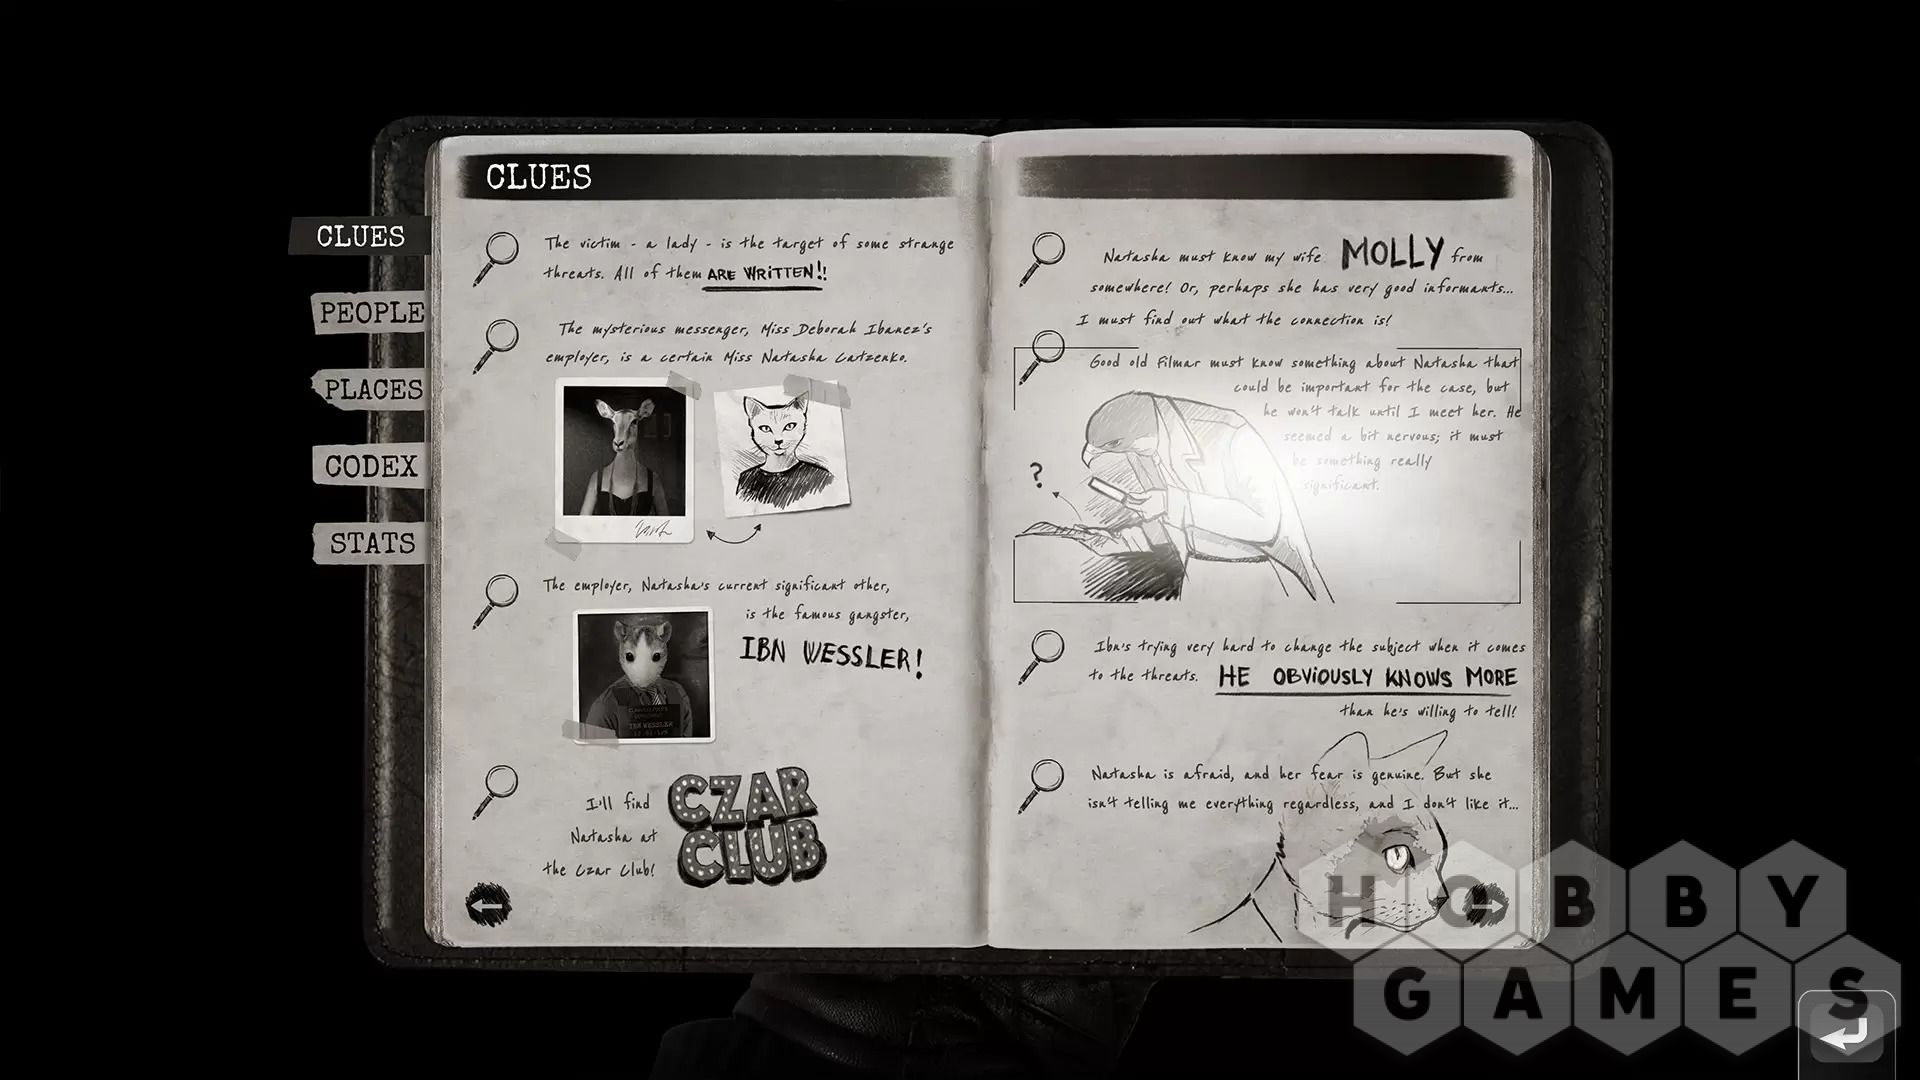 CLUES
CLUES
PEOPLE
PLACES
CODEX
STATS
The victim - a lady - is the target of some strange
threats. All of them ARE WRITTEN!!
The mysterious messenger, Miss Deborah Ibanez's
employer, is a certain Miss Natasha Catzenko.
The employer, Natasha's current significant other,
is the famous gangster,
IBN WESSLER!
IBN WESSLER
I'll find
Natasha at
the Czar Club!
CZAR
CLUB
Natasha must know my wife MOLLY from
somewhere! Or, perhaps she has very good informants...
I must find out what the connection is!
Good old Filmar must know something about Natasha that
could be important for the case, but
he won't talk until I meet her. He
seemed a bit nervous; it must
be something really
significant.
?
Ibn's trying very hard to change the subject when it comes
to the threats. HE OBVIOUSLY KNOWS MORE
than he's willing to tell!
Natasha is afraid, and her fear is genuine. But she
isn't telling me everything regardless, and I don't like it...
HOBBY
GAMES